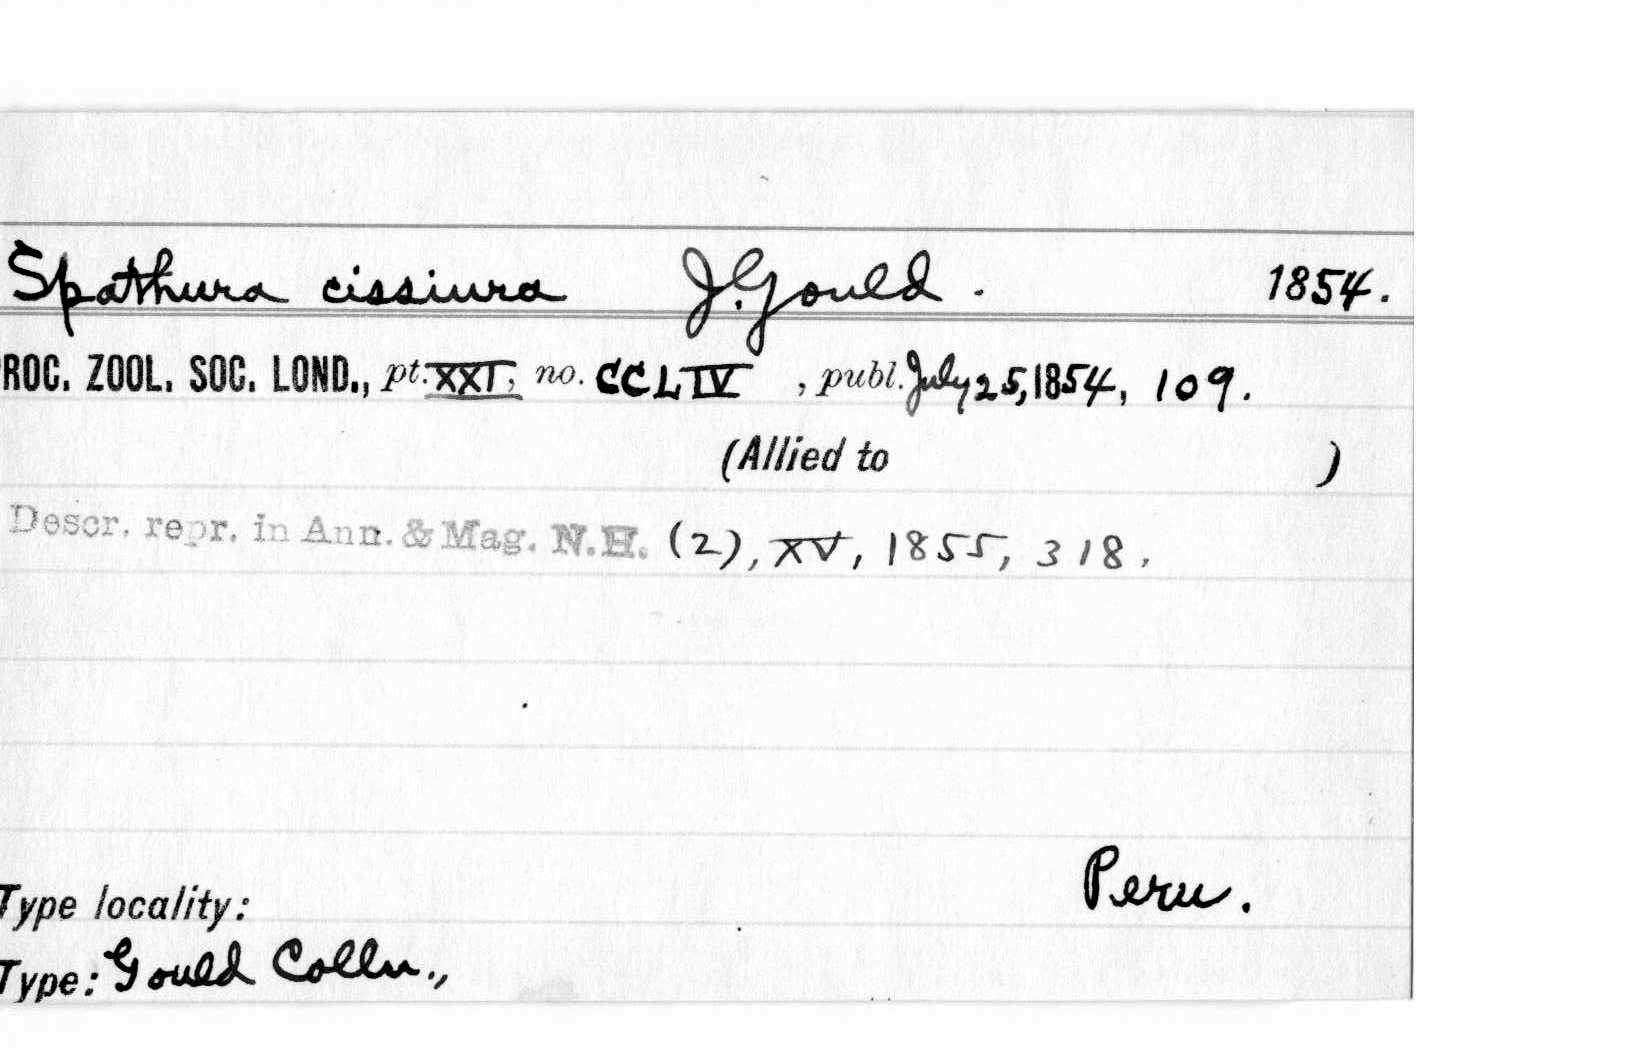 Spathura cissiura J. Gould. 1854.
ROC. ZOOL. SOC. LOND., pt. XXI, no. CCLIV , publ. July 25, 1854, 109.
(Allied to )
Descr. repr. in Ann. & Mag. N.H. (2), XV, 1855, 318.
Peru.
Type locality:
Type: Gould Colln.,